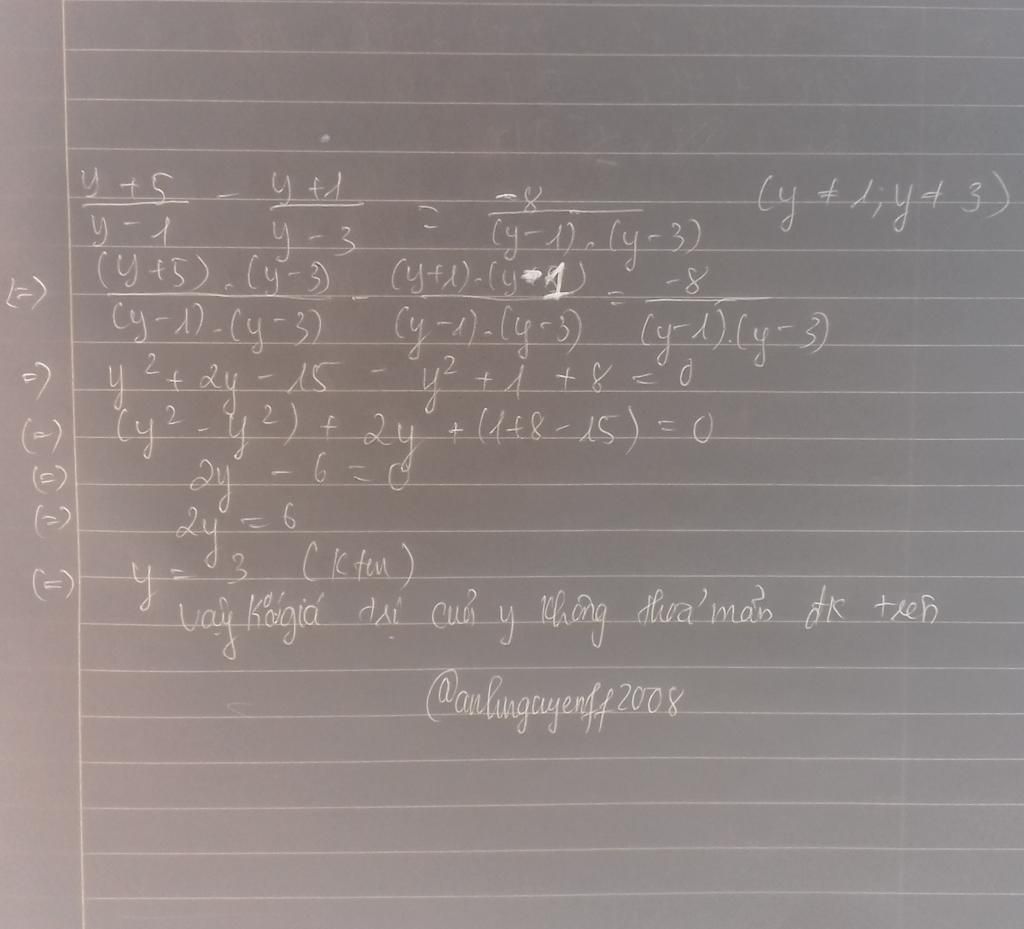 y + 5 / y - 1 - y + 1 / y - 3 = -8 / (y-1).(y-3) (y ≠ 1; y ≠ 3)
(=) (y+5).(y-3) / (y-1).(y-3) - (y+1).(y-1) / (y-1).(y-3) = -8 / (y-1).(y-3)
=) y² + 2y - 15 - y² + 1 + 8 = 0
(=) (y² - y²) + 2y + (1+8-15) = 0
(=) 2y - 6 = 0
(=) 2y = 6
(=) y = 3 (Ktm)
vậy giá trị của y không thoả mãn đk trên
@anhnguyenff2008